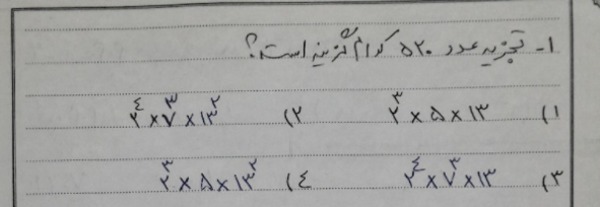 ۱- تجزیه عدد ۵۲۰ کدام گزینه است؟
۱) ۲^۳ × ۵ × ۱۳    ۲) ۲^۴ × ۷^۳ × ۱۳^۲
۳) ۲^۴ × ۷^۳ × ۱۳    ۴) ۲^۳ × ۵ × ۱۳^۲